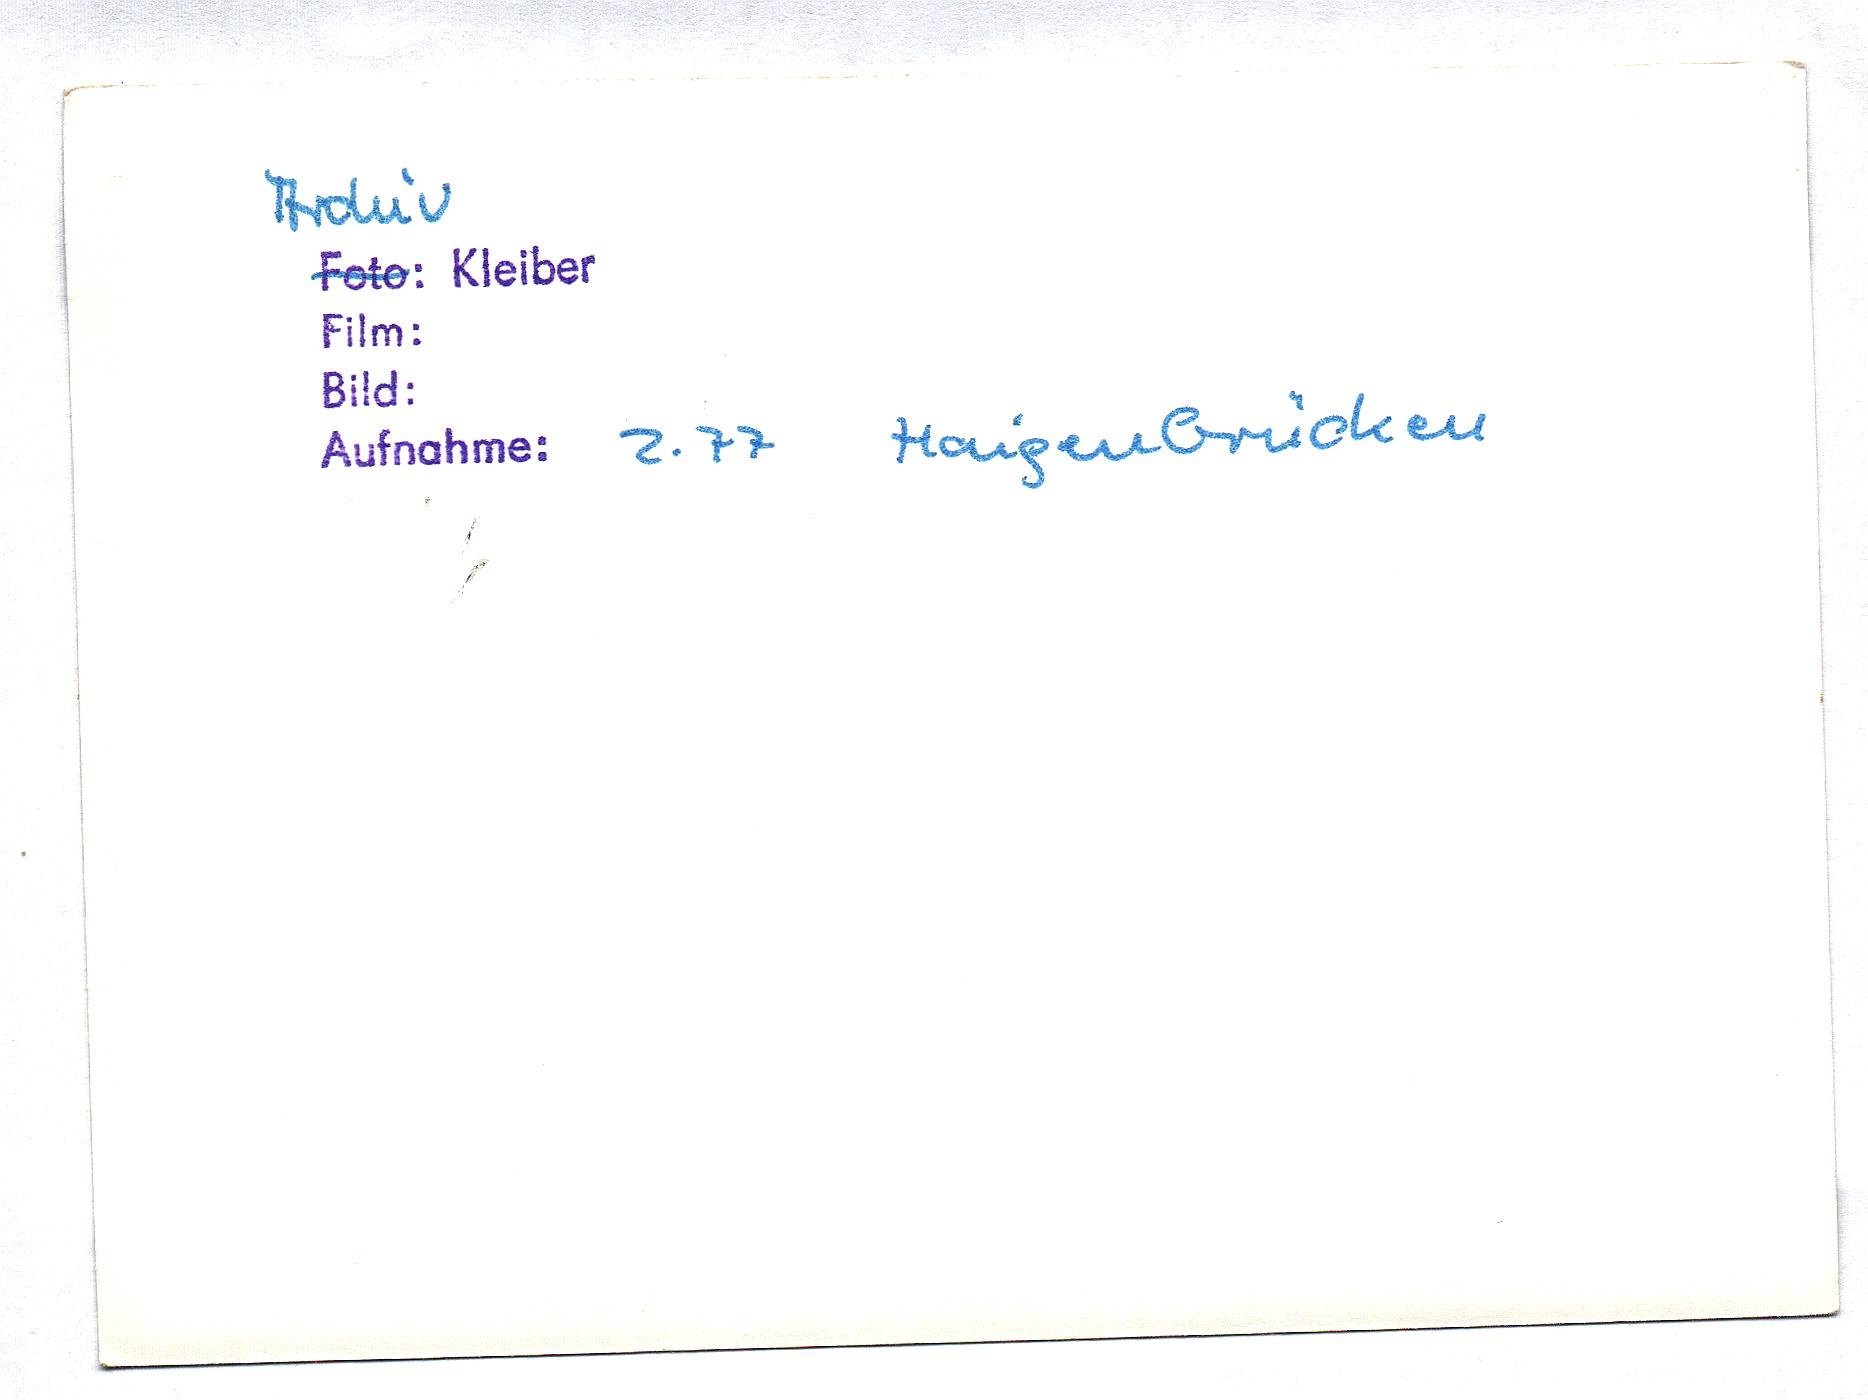 Archiv
Foto: Kleiber
Film:
Bild:
Aufnahme: 2.77 Haigenbrücken